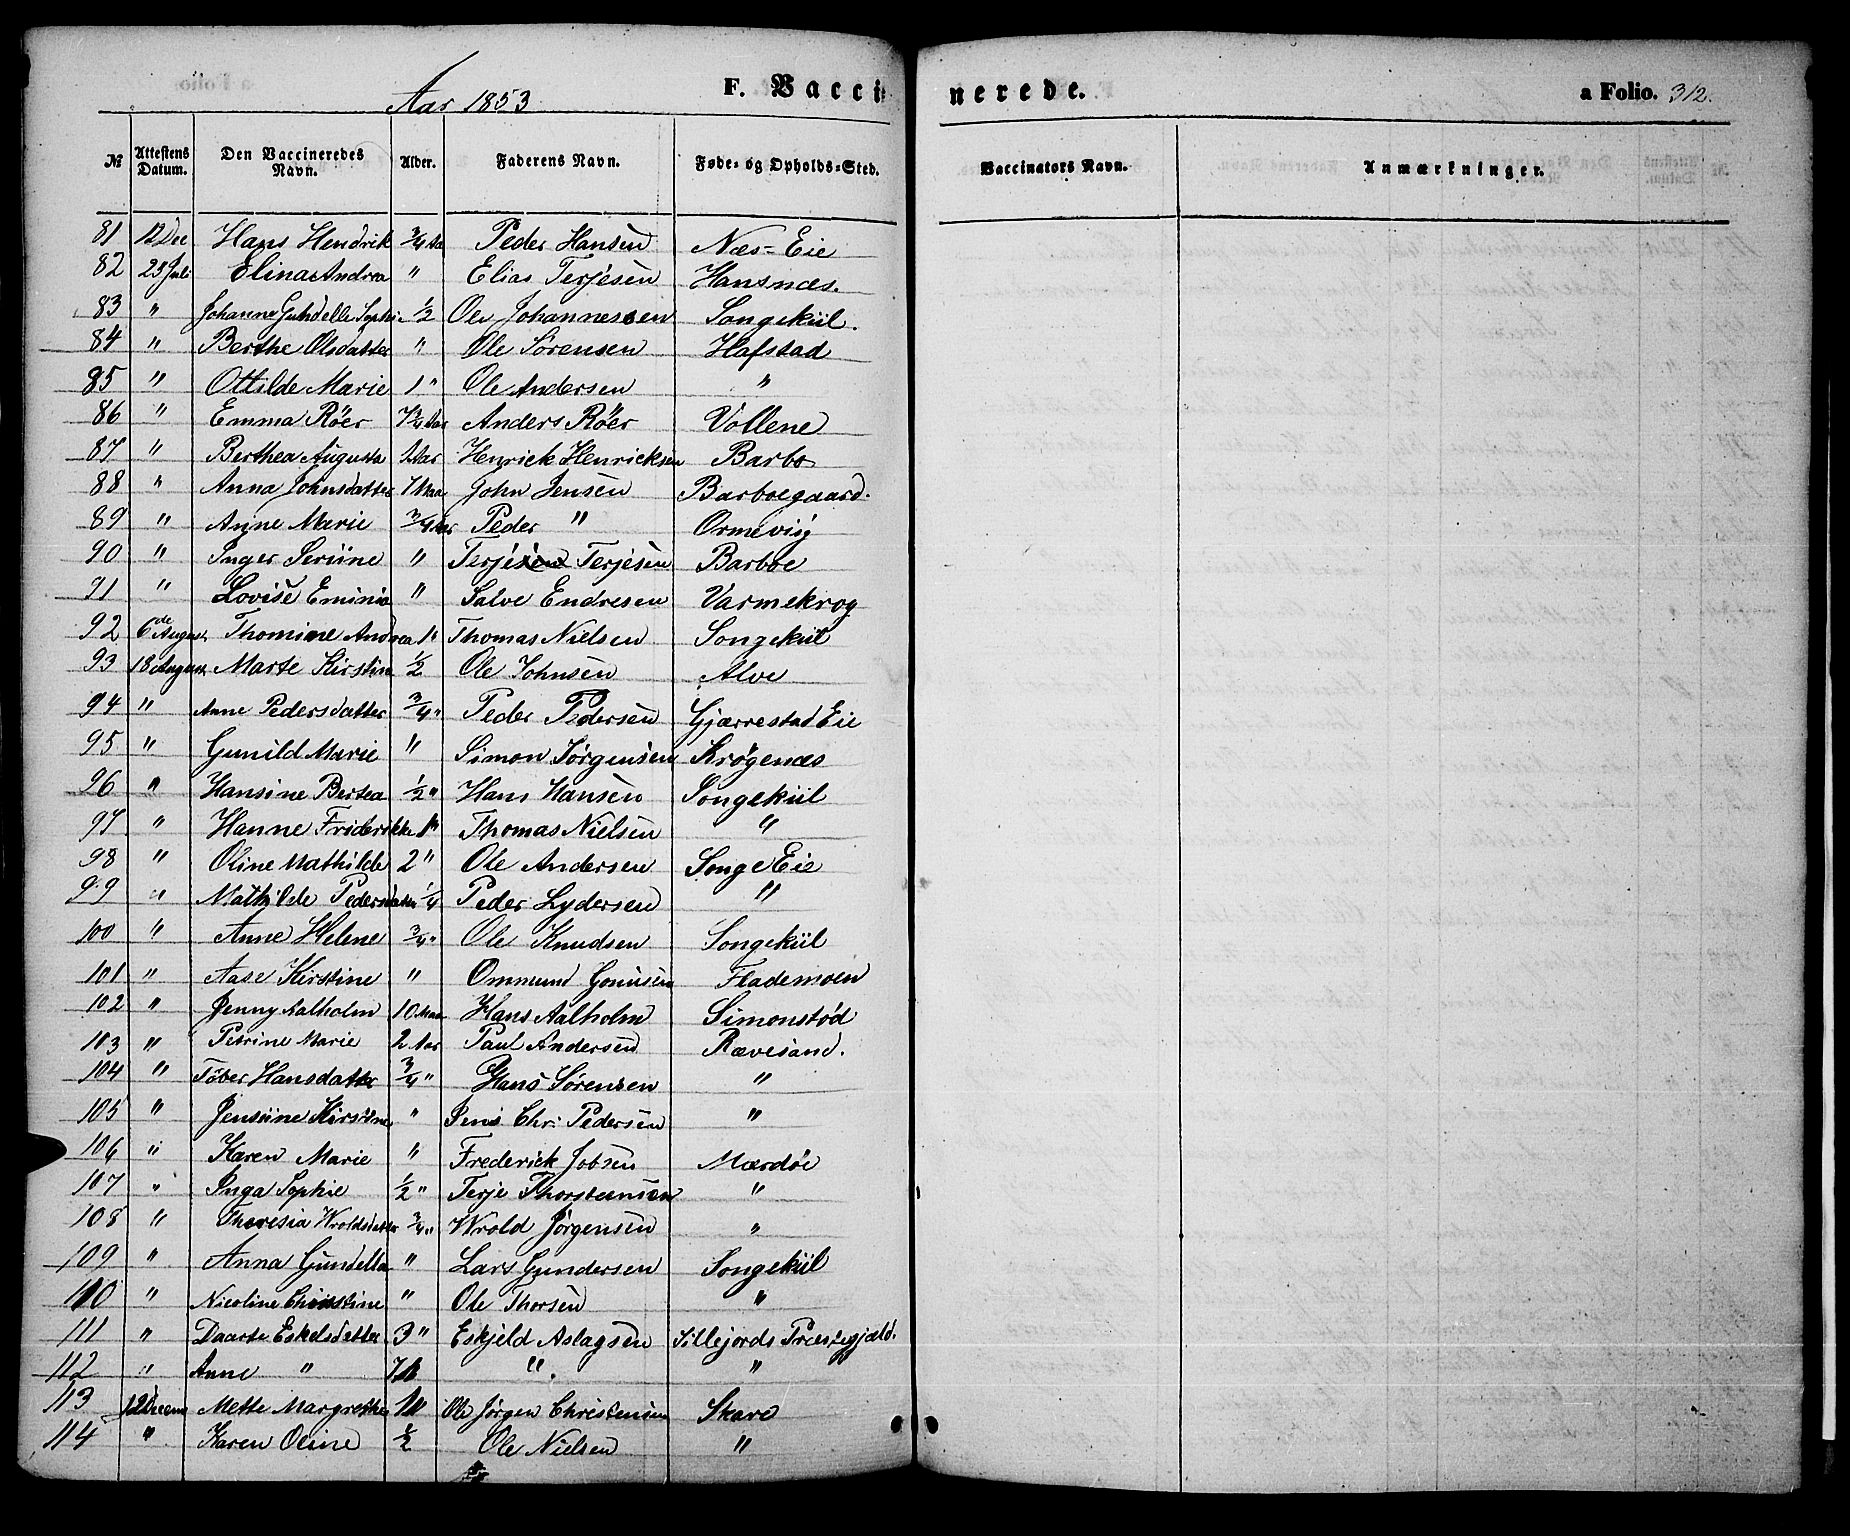 Aar 1853
F. Vaccinerede.
a Folio. 312.
№ Attestens Datum. Den Vaccineredes Navn. Alder. Faderens Navn. Føde- og Opholds-Sted. Vaccinators Navn. Anmærkninger.
81 12 Dec Hans Hendrik 3/4 Aar Peder Hansen Næs-Eie
82 25 Juli Elina Andrea " Elias Terjesen Hansnæs.
83 " Johanne Gundelle Sophie 1/2 Ole Johannessen Songekiil.
84 " Berthe Olsdatter " Ole Sørensen Hafstad
85 " Ottilde Marie 1 " Ole Andersen "
86 " Emma Röer Aar Anders Röer Vollene
87 " Berthea Augusta 1 Aar Henrick Henricksen Barbo
88 " Anna Johnsdatter 7 Maa John Jensen Barboegaard.
89 " Anne Marie 3/4 Aar Peder " Ormeviig
90 " Inger Seriine " Terjesen Terjesen Barboe
91 " Lovise Eminia " Salve Endresen Varmekrog
92 6de August Thomine Andrea 1 " Thomas Nielsen Songekiil
93 18 August Marte Kirstine 1/2 Ole Johnsen Alve
94 " Anne Pedersdatter 3/4 " Peder Pedersen Gjærrestad Eie
95 " Gunild Marie " Simon Jørgensen Krøgenæs
96 " Hansine Bertea 1/2 " Hans Hansen Songekiil
97 " Hanne Friderikke 1 " Thomas Nielsen "
98 " Oline Mathilde 2 " Ole Andersen Songe Eie
99 " Mathilde Pedersdatter 1/4 Peder Lydersen "
100 " Anne Helene 3/4 " Ole Knudsen Songekiil
101 " Aase Kirstine " Ommund Flademoen
102 " Jenny Aalholm 10 Maa Hans Aalholm Simonstød
103 " Petrine Marie 2 Aar Paul Andersen Rævesand.
104 " Töber Hansdatter 3/4 " Hans Sørensen "
105 " Jensiine Kirstine " Jens Chr: Pedersen "
106 " Karen Marie " Frederick Jobsen Mærdøe
107 " Inga Sophie 1/2 " Terje Thorstensen "
108 " Theresia Wroldsdatter 3/4 " Wrold Jørgensen "
109 " Anna Gundella " Lars Gundersen Songekiil
110 " Nicoline Christine " Ole Thorsen "
111 " Daarte Eskelsdatter 3 " Eskjeld Aslagsen Sillejords Præstegjæld.
112 " Anne " " "
113 12 Decem Mette Margrethe 1 Ole Jørgen Christensen Skare
114 " Karen Oline 1/2 Ole Nielsen "